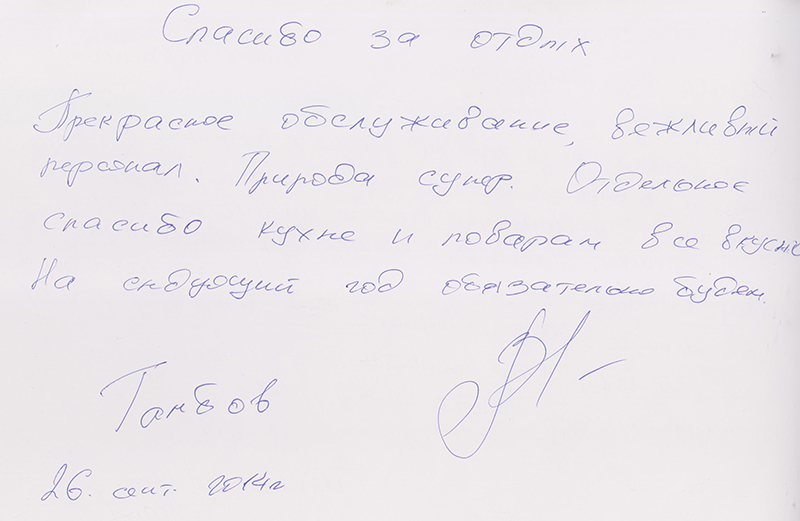 Спасибо за отдых
Прекрасное обслуживание, вежливый
персонал. Природа супер. Отдельное
спасибо кухне и поварам все вкусно
На следующий год обязательно будем.
Тамбов
26. сент. 2014г